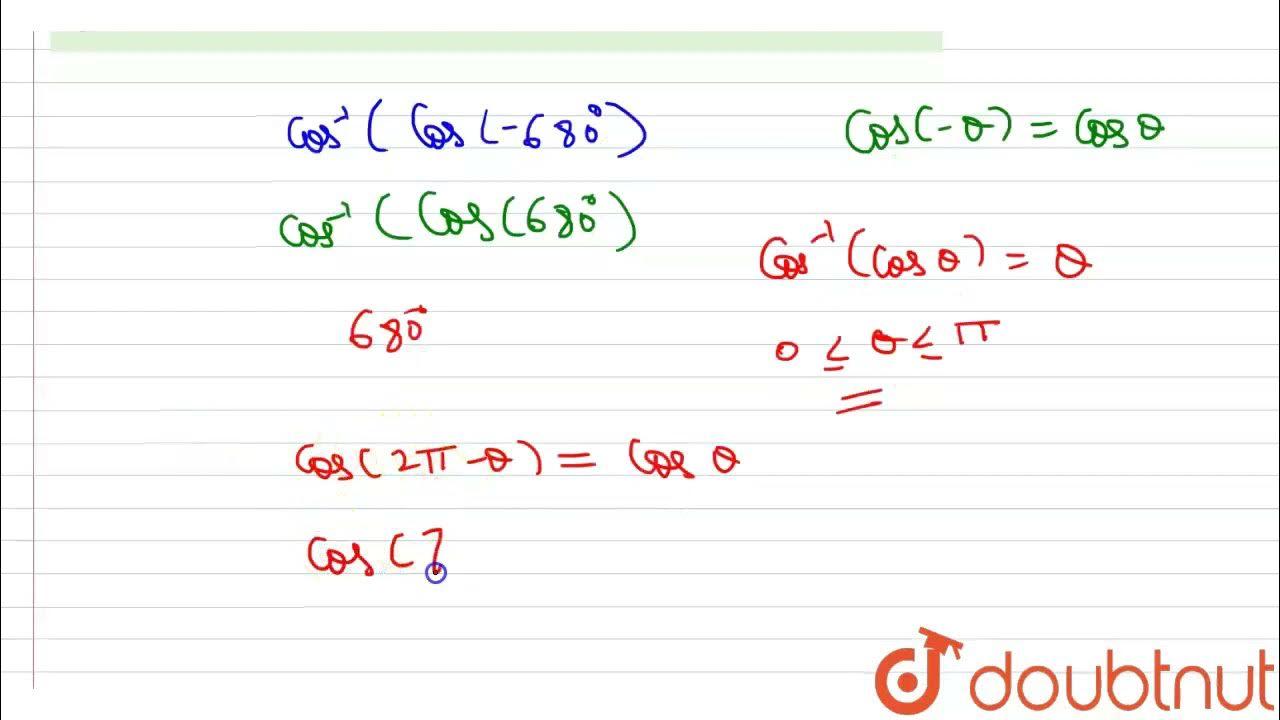 cos⁻¹ ( cos (-680°)
cos(-θ) = cos θ
cos⁻¹ ( cos (680°)
cos⁻¹ (cos θ) = θ
680°
0 ≤ θ ≤ π
cos(2π -θ) = cos θ
cos (7
doubtnut